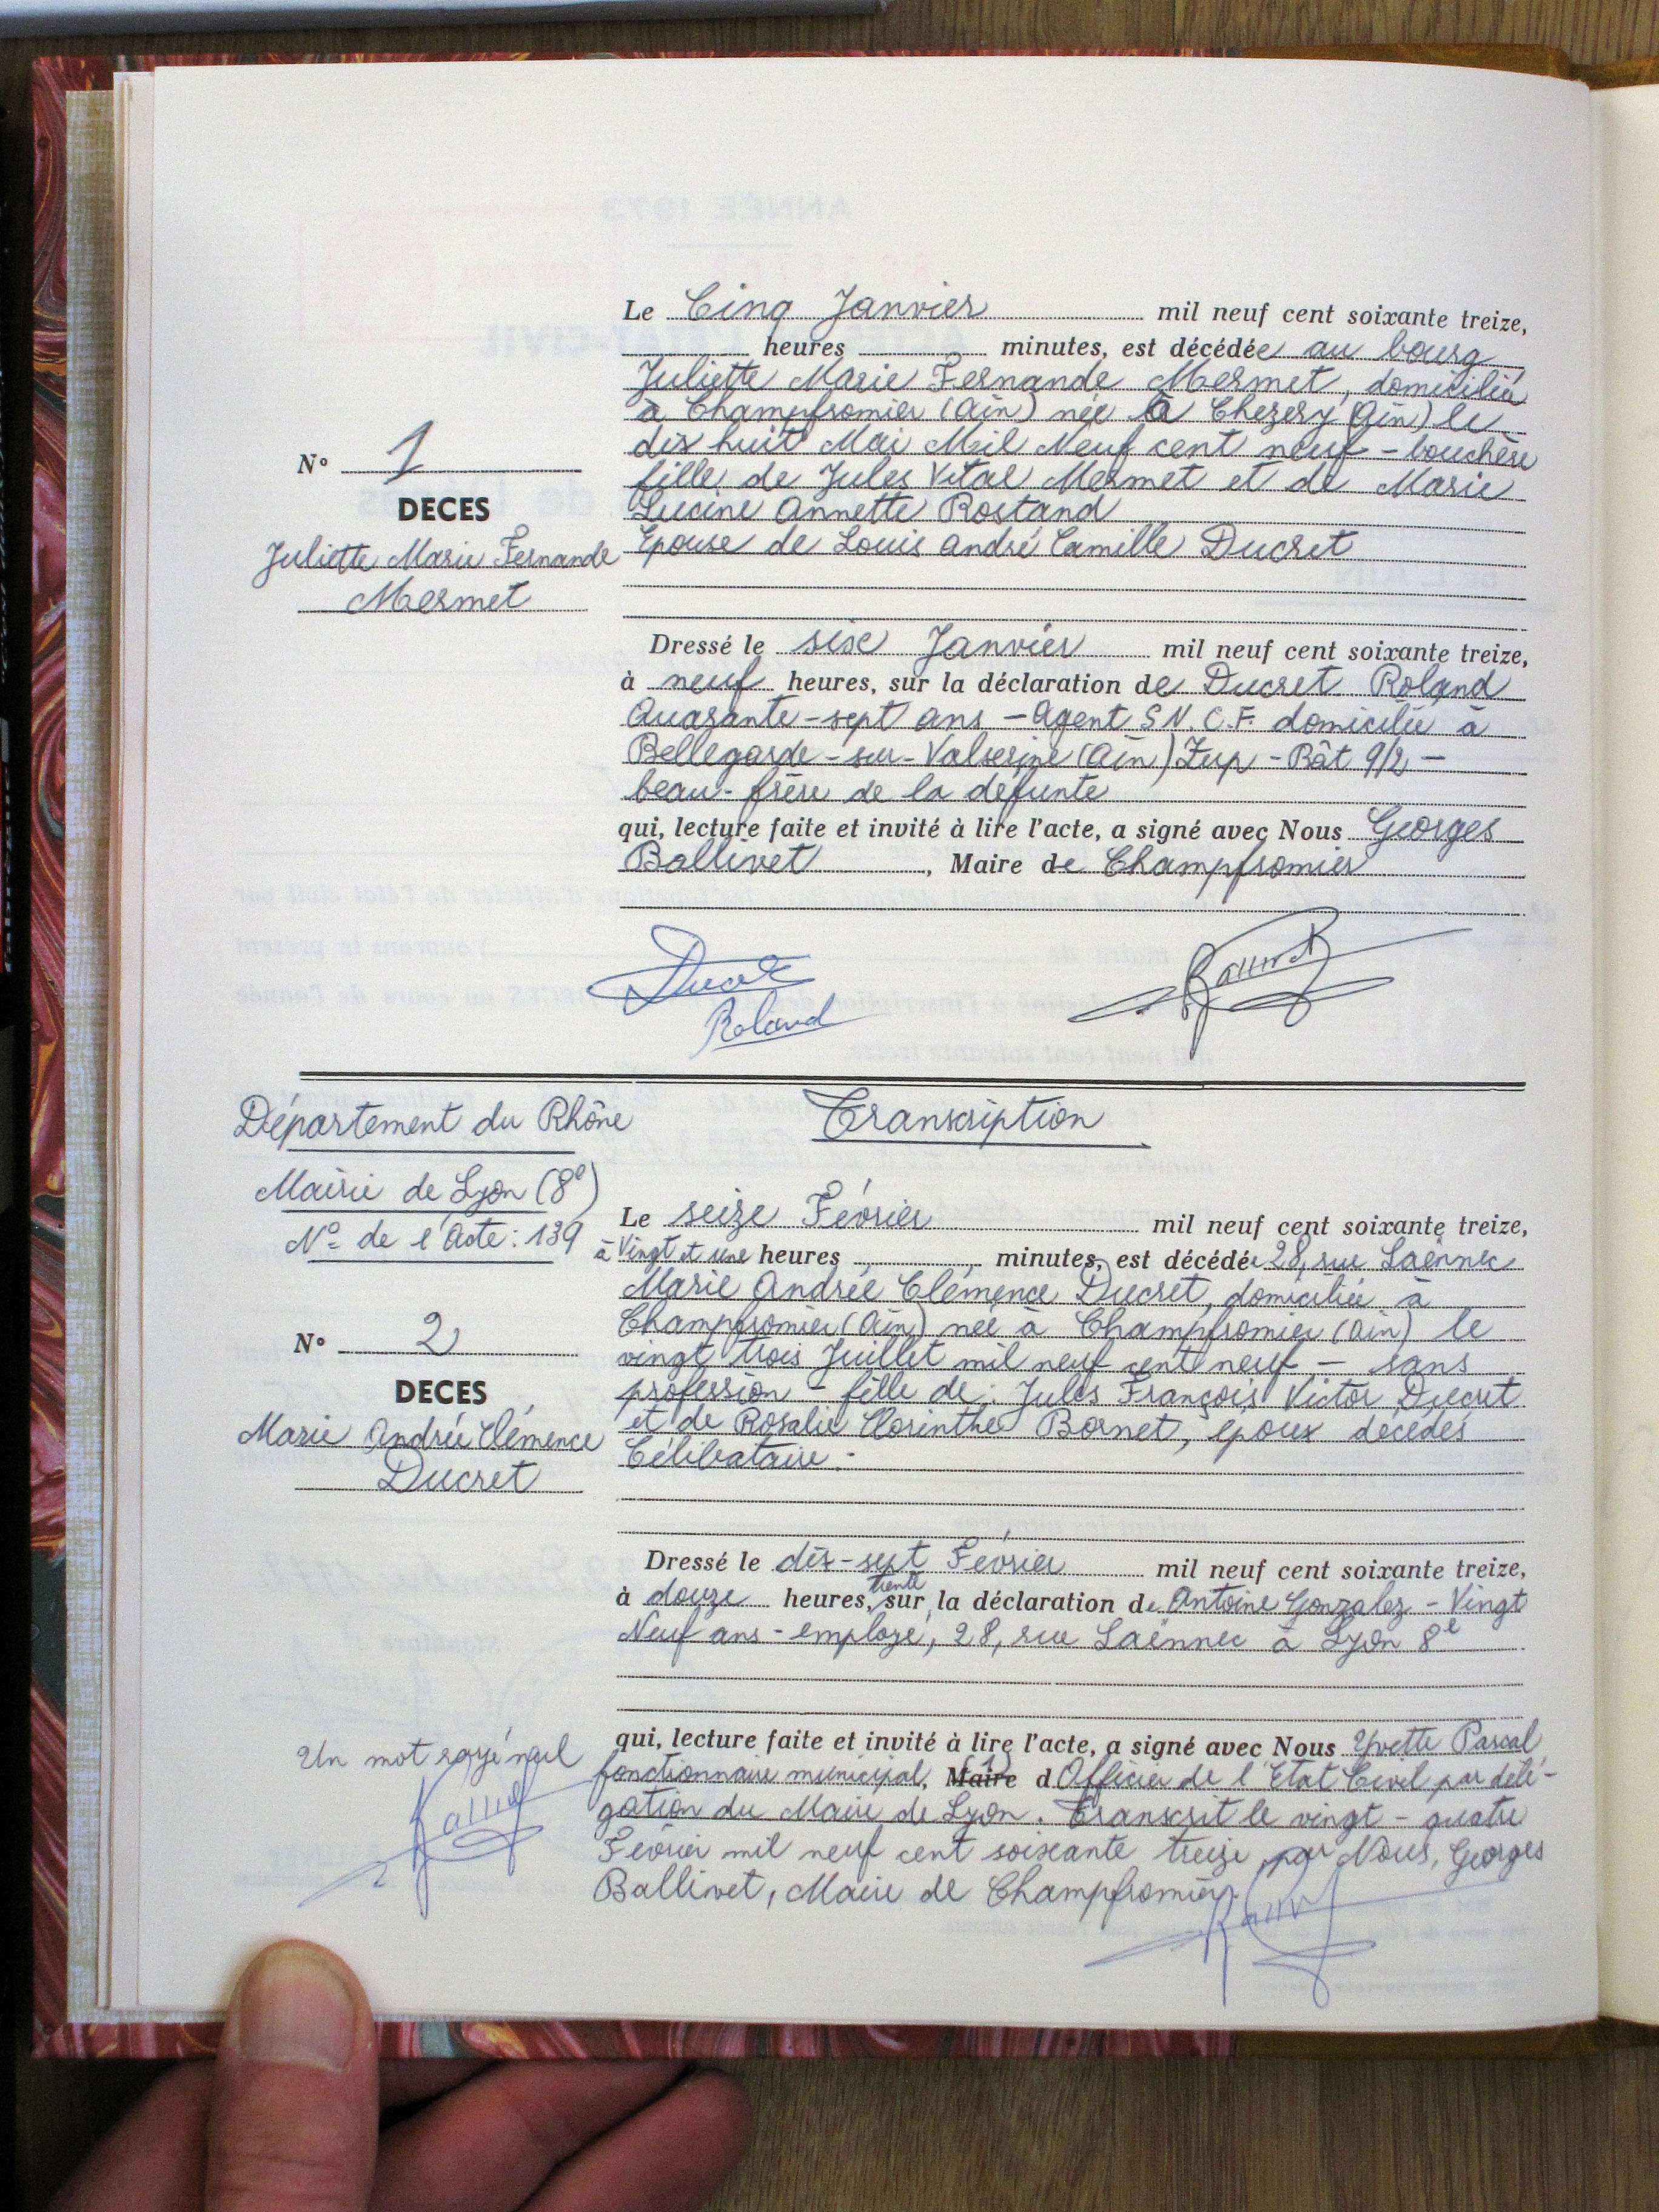 Le Cinq Janvier mil neuf cent soixante treize,
heures minutes, est décédée au bourg
Juliette Marie Fernande Mermet, domiciliée
à Champfromier (Ain) née à Chezery (Ain) le
dix huit Mai Mil Neuf cent neuf - bouchère
fille de Jules Vital Mermet et de Marie
Lucine Annette Rostand
Epouse de Louis André Camille Ducret
N° 1
DECES
Juliette Marie Fernande
Mermet
Dressé le six Janvier mil neuf cent soixante treize,
à neuf heures, sur la déclaration de Ducret Roland
Quarante-sept ans - Agent S.N.C.F. domicilié à
Bellegarde-sur-Valserine (Ain) Zup - Bât 9/2 -
beau-frère de la défunte
qui, lecture faite et invité à lire l'acte, a signé avec Nous Georges
Ballivet, Maire de Champfromier
Ducret
Roland
Ballivet
Département du Rhône
Mairie de Lyon (8e)
N° de l'Acte : 139
Transcription
Le seize Février mil neuf cent soixante treize,
à Vingt et une heures minutes, est décédée 28, rue Laënnec
Marie Andrée Clémence Ducret, domiciliée à
Champfromier (Ain) née à Champfromier (Ain) le
vingt trois Juillet mil neuf cent neuf - sans
profession - fille de : Jules François Victor Ducret
et de Rosalie Corinthe Bornet, époux décédés
Célibataire.-
N° 2
DECES
Marie Andrée Clémence
Ducret
Dressé le dix-sept Février mil neuf cent soixante treize,
à douze heures, trente sur la déclaration de Antoine Gonzalez - Vingt
Neuf ans - employé, 28, rue Laënnec à Lyon 8e
qui, lecture faite et invité à lire l'acte, a signé avec Nous Yvette Pascal,
fonctionnaire municipal, Maire (1) d Officier de l'Etat Civil par délé-
gation du Maire de Lyon. Transcrit le vingt-quatre
Février mil neuf cent soixante treize par Nous, Georges
Ballivet, Maire de Champfromier.
Un mot rayé nul
Ballivet
Ballivet